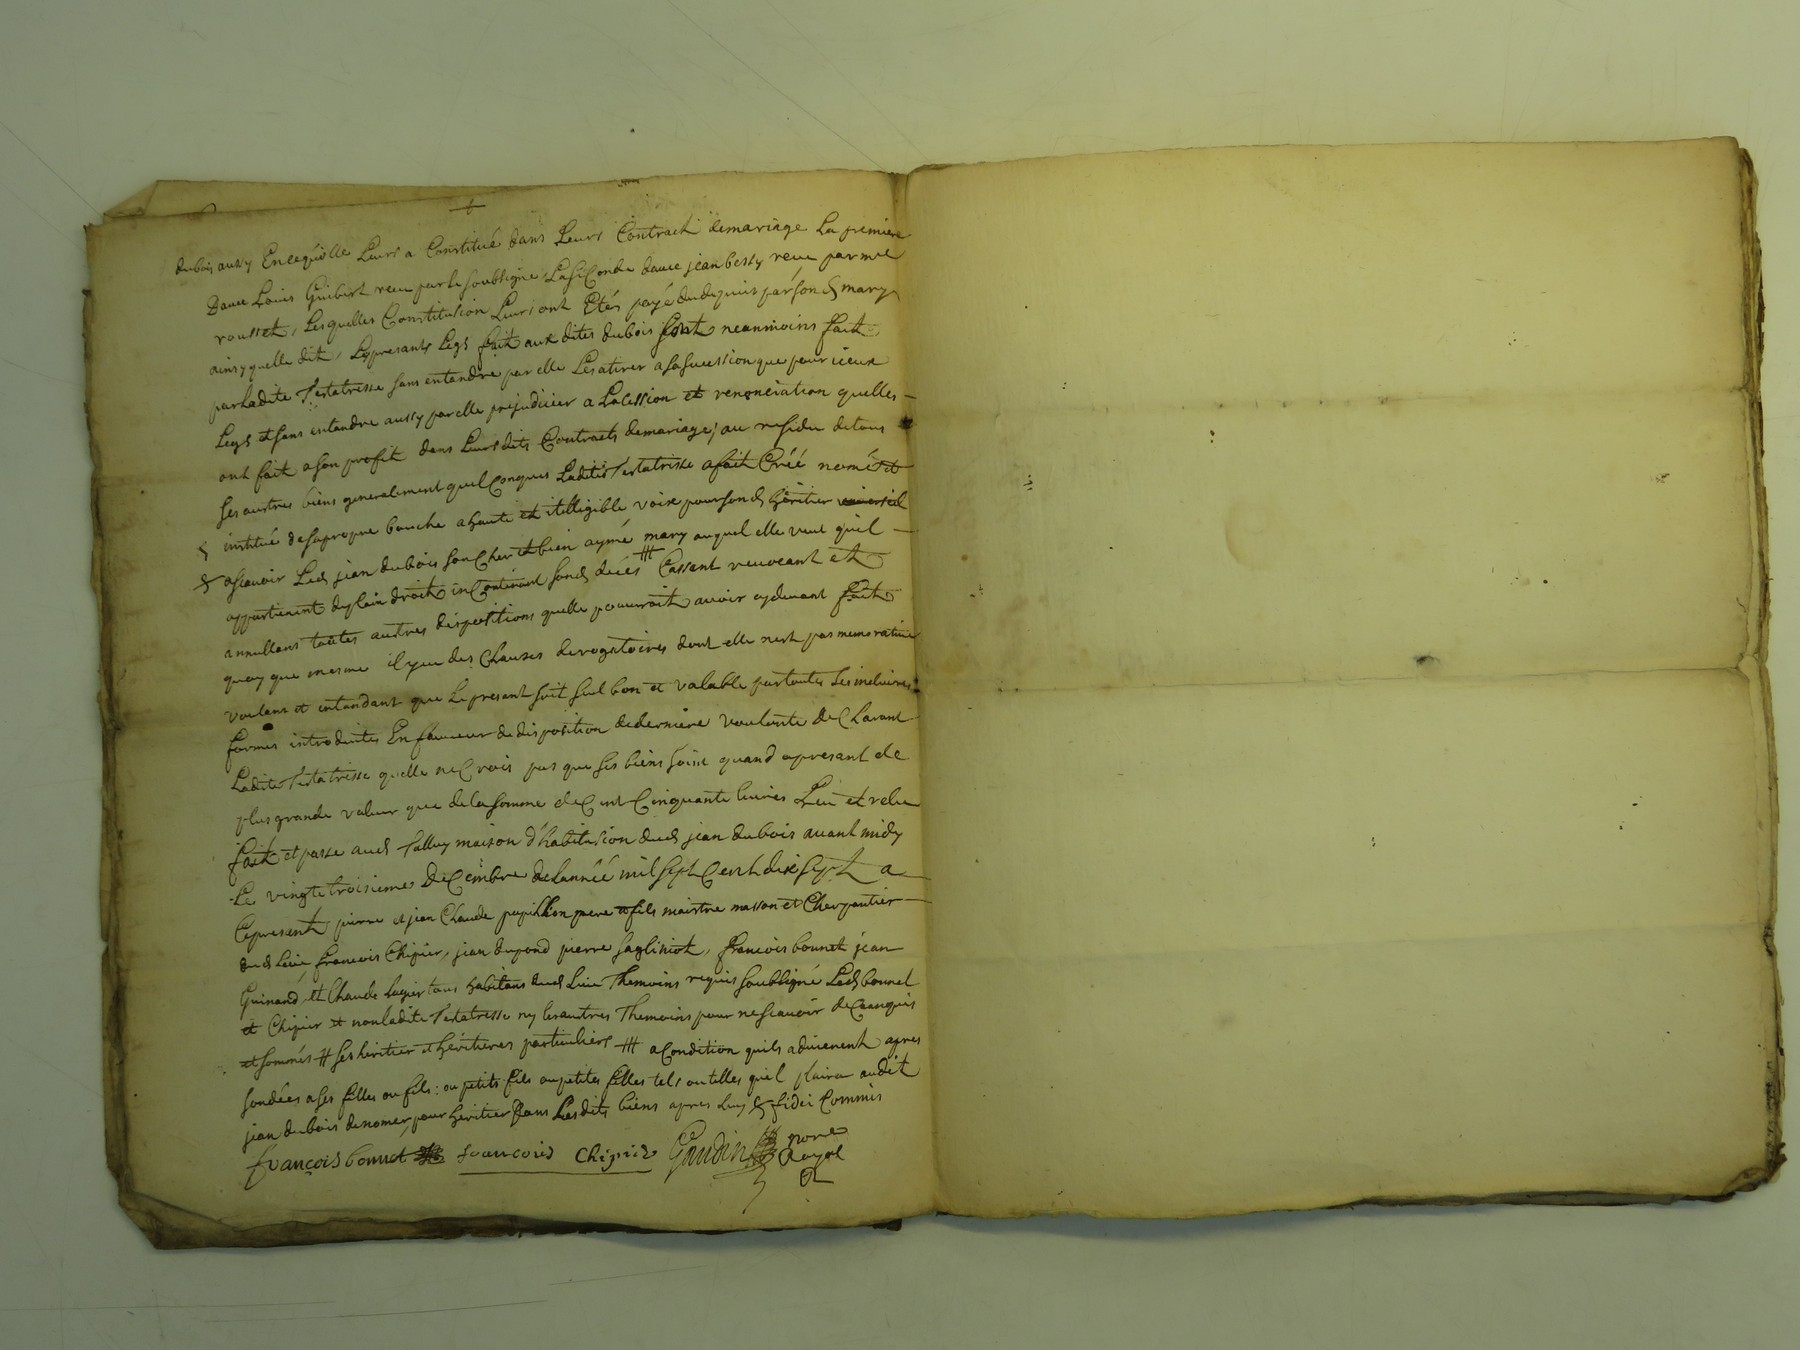 dubois aussy En cequ'elle Leurs a Constitué dans Leurs Contract demariage La premiere
Davec Louis Guibert receu par le soubsigné, La seconde davec jean bessy receu par me
rousset, Lesquelles Constitution Leurs ont Etés payé dudepuis par son d mary
ainsy quelle dit, Lespresants Legs fait aux dites dubois sont neanmoins fait
par Ladite Testatrisse sans entandre par elle Les atirer a sa sucession que pour iceux
Legs et sans entandre aussy par elle prejudicier a La cession et renonciation quelles
ont fait a son profit dans Leursdits Contracts demariage; au residu de tous
ses austres biens generalement quelconques Ladite Testatrisse a fait Créé nomé et
institué de sa propre bouche a haute et itelligible voix pour son d héritier universel
ascauoir Led jean dubois son Cher et bien aymé mary auquel elle veut quil
appartienent deplain droit incontinant sond décés # Cassant reuocant et
annullant toutes austres dispositions quelle pouuroit auoir cydeuant fait
quoy que mesme il y eu des Clauses derogatoires dont elle nest pas memoratiue
voulant et entandant que Le presant soit seul bon et valable par toutes Les meliures
formes introduites En faueur de disposition dederniere voulonte declarant
Ladite Testatrisse quelle ne Crois pas que ses biens soint quand apresant de
plus grande valeur que de la somme de Cent Cinquante liures Leu et releu
fait et passe aud Talluy maison d'habitation dud jean dubois auant midy
Le vingt troisieme decembre de lannéé mil sept Cent dix sept a
Cepresent pierre et jean Claude papillion pere et fils maistre masson et Cherpantier
dud Lieu, francois Chipier, jean dupond pierre francois bonnet jean
Guinand et Claude tous habitans dud Lieu Themoins requis soubsigné Led bonnet
et Chipier et non ladite Testatrisse ny les austres Themoins pour ne scauoir de ce enquis
et sommés # ses heritier et héritieres particuliers # a Condition quils aduienent apres
sondécés a ses filles ou fils: ou petits fils ou petites filles tels ou telles quil plaira audit
jean dubois denomer pour héritier dans Lesdits biens apres luy § fidei Commis
françois bonnet francois Chipier Gaudin nore
Royal